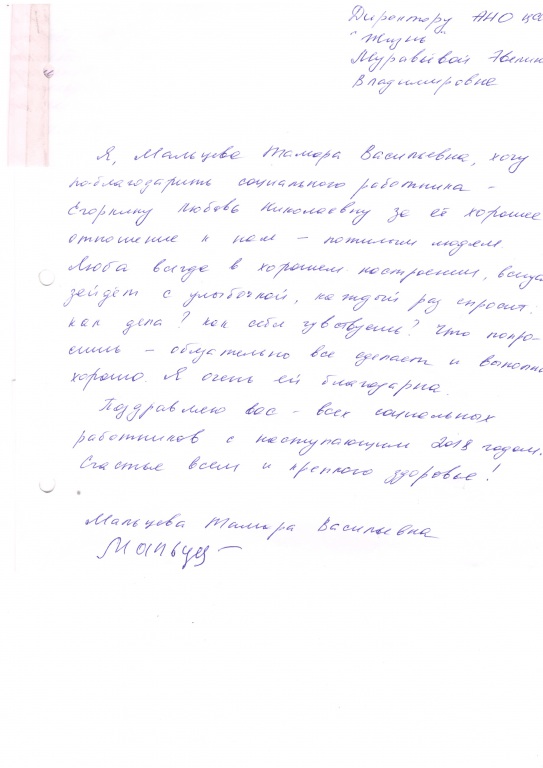 Директору АНО ЦС
"Жизнь"
Муравьёвой Эвелин
Владимировне
Я, Мальцева Тамара Васильевна, хочу
поблагодарить социального работника –
Егоркину Любовь Николаевну за её хорошее
отношение к нам – пожилым людям.
Люба всегда в хорошем настроении, всегда
зайдёт с улыбочкой, каждый раз спросит:
как дела? как себя чувствуешь? Что попро-
сишь – обязательно все сделает и выполни
хорошо. Я очень ей благодарна.
Поздравляю вас – всех социальных
работников с наступающим 2018 годом.
Счастье всем и крепкого здоровье!
Мальцева Тамара Васильевна
Мальцев